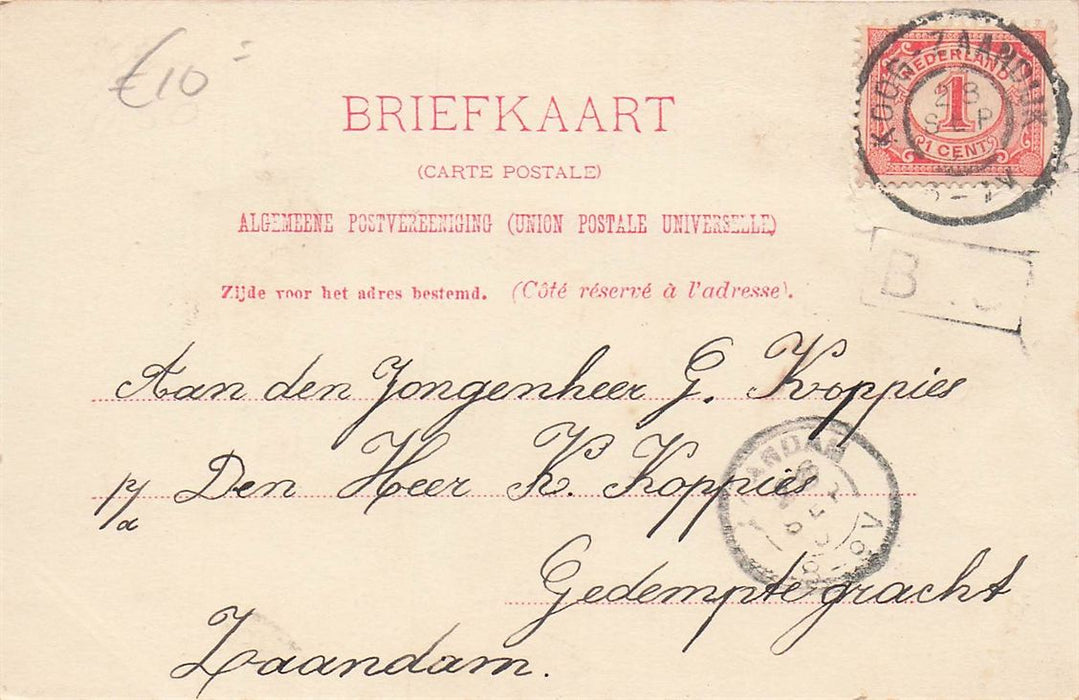 €10-
BRIEFKAART
(CARTE POSTALE)
ALGEMEENE POSTVEREENIGING (UNION POSTALE UNIVERSELLE)
Zijde voor het adres bestemd. (Côté réservé à l'adresse).
KOOG-ZAANDIJK
28
SEP
NEDERLAND
1
1 CENT
B
Aan den Jongenheer G. Koppies
p/a Den Heer K. Koppies
ZAANDAM
Gedempte gracht
Zaandam.